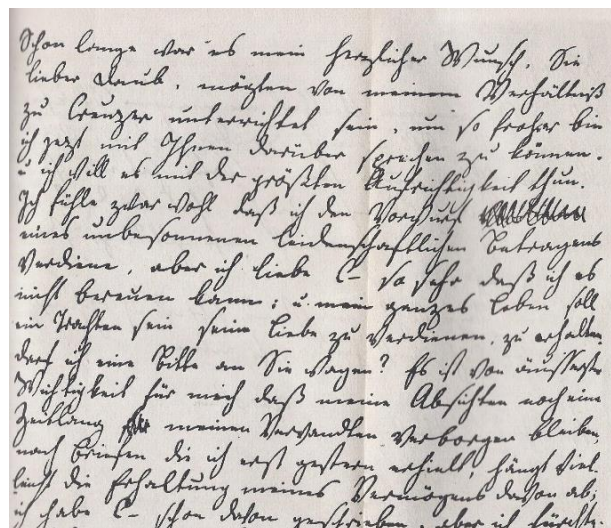 Schon lange war es mein herzlicher Wunsch, Sie
lieber Daub, mögten von meinem Verhältniß
zu Creuzer unterrichtet sein, um so froher bin
ich jezt mit Ihnen darüber sprechen zu können.
u ich will es mit der größten Aufrichtigkeit thun.
Ich fühle zwar wohl daß ich den Vorwurf
eines unbesonnenen leidenschaftlichen Betragens
verdiene, aber ich liebe C– so sehr daß ich es
nicht bereuen kann; u mein ganzes Leben soll
ein Trachten sein seine Liebe zu verdienen, zu erhalten
darf ich eine Bitte an Sie wagen? Es ist von äusserster
Wichtigkeit für mich daß meine Absichten noch eine
Zeitlang meinen Verwandten verborgen bleiben,
nach Briefen die ich erst gestern erhielt, hängt viel-
leicht die Erhaltung meines Vermögens davon ab;
ich habe C– schon davon geschrieben, aber ich fürchte